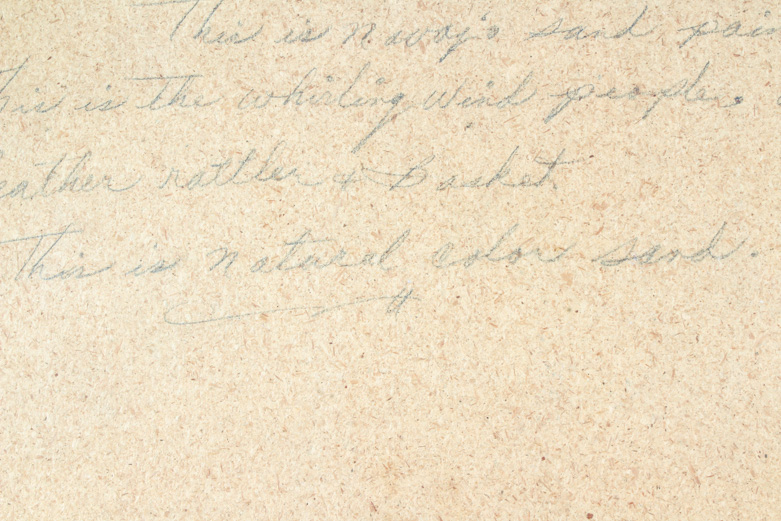 This is Navajo sand pain
his is the whirling wind people.
eather rattler & Basket
This is natural color sand.